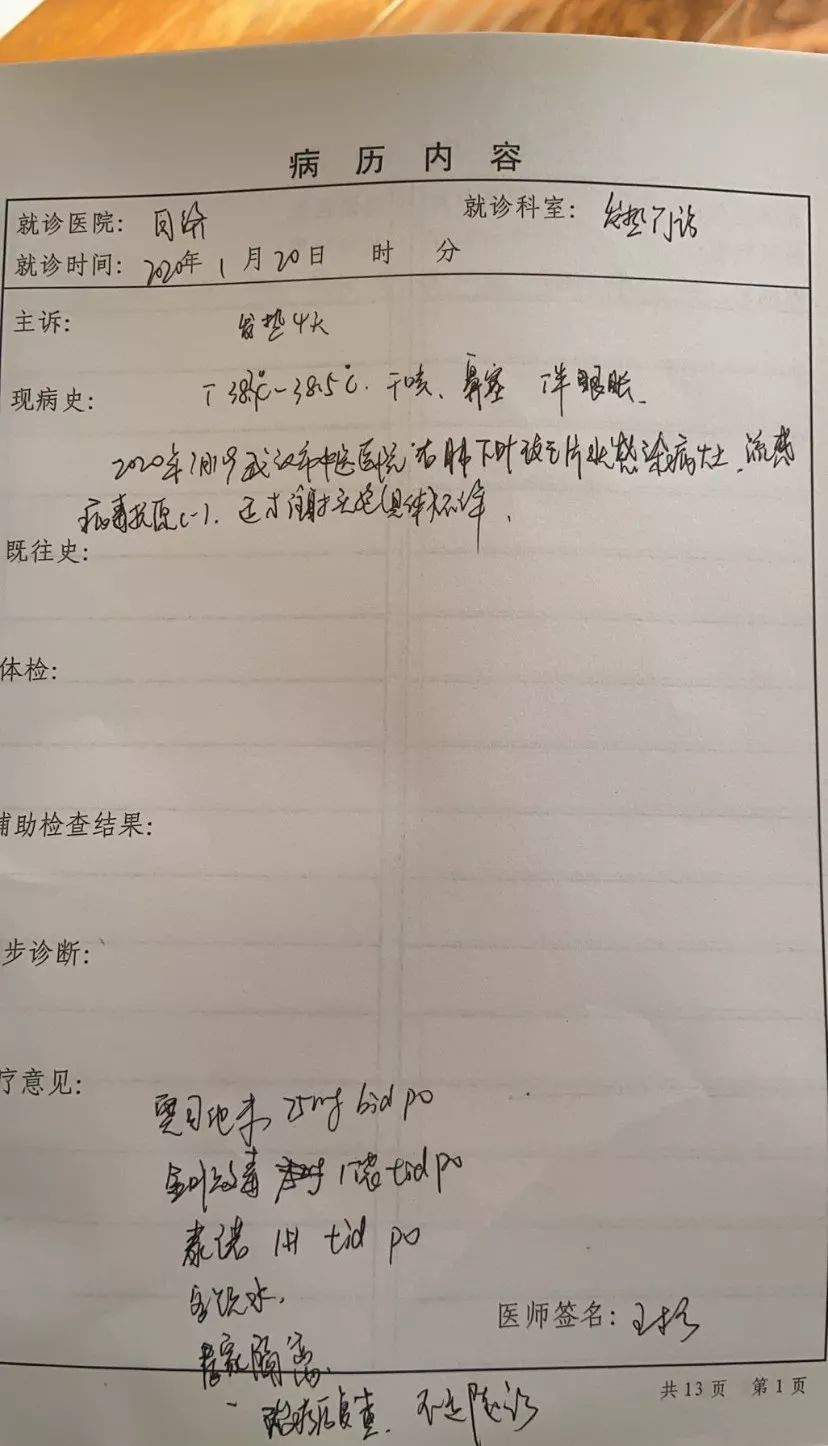 病历内容
就诊医院: 同济 就诊科室: 发热门诊
就诊时间: 2020年1月20日 时 分
主诉: 发热4天
现病史: T 38.3℃-38.5℃. 干咳、鼻塞 伴眼胀.
2020年1月19武汉市中医医院 右肺下叶 片状感染病灶. 流感
病毒抗原(-).
既往史:
体检:
辅助检查结果:
步诊断:
疗意见:
奥司他韦 75mg bid po
金叶败毒 1袋 tid po
泰诺 1# tid po
多饮水.
居家隔离.
医师签名:
复查. 不适随诊
共13页 第1页